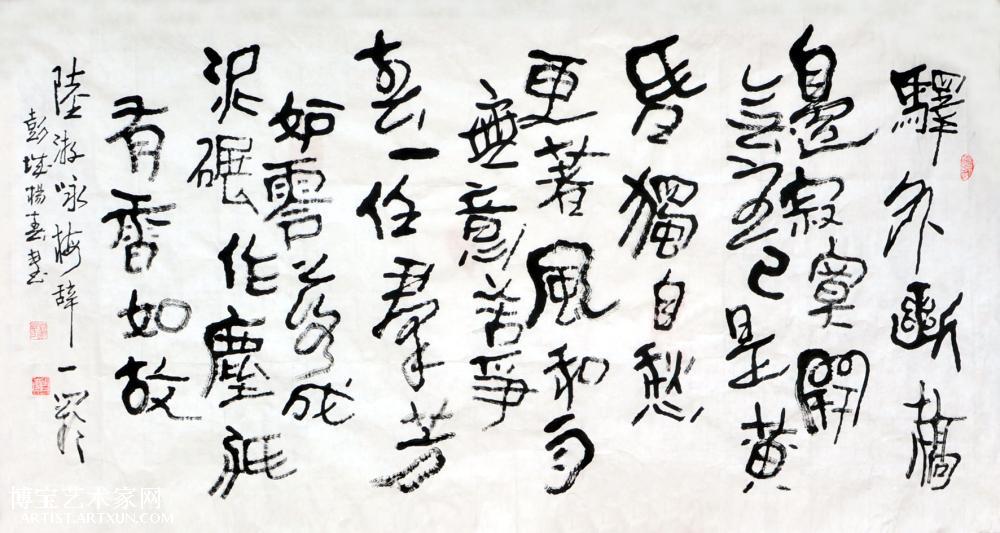 驛外斷橋
邊寂寞開
無主已是黃
昏獨自愁
更著風和雨
無意苦爭
春一任羣芳
妒零落成
泥碾作塵祇
有香如故
陸游咏梅辞一闋
彭城楊春書
博宝艺术家网
ARTIST.ARTXUN.COM